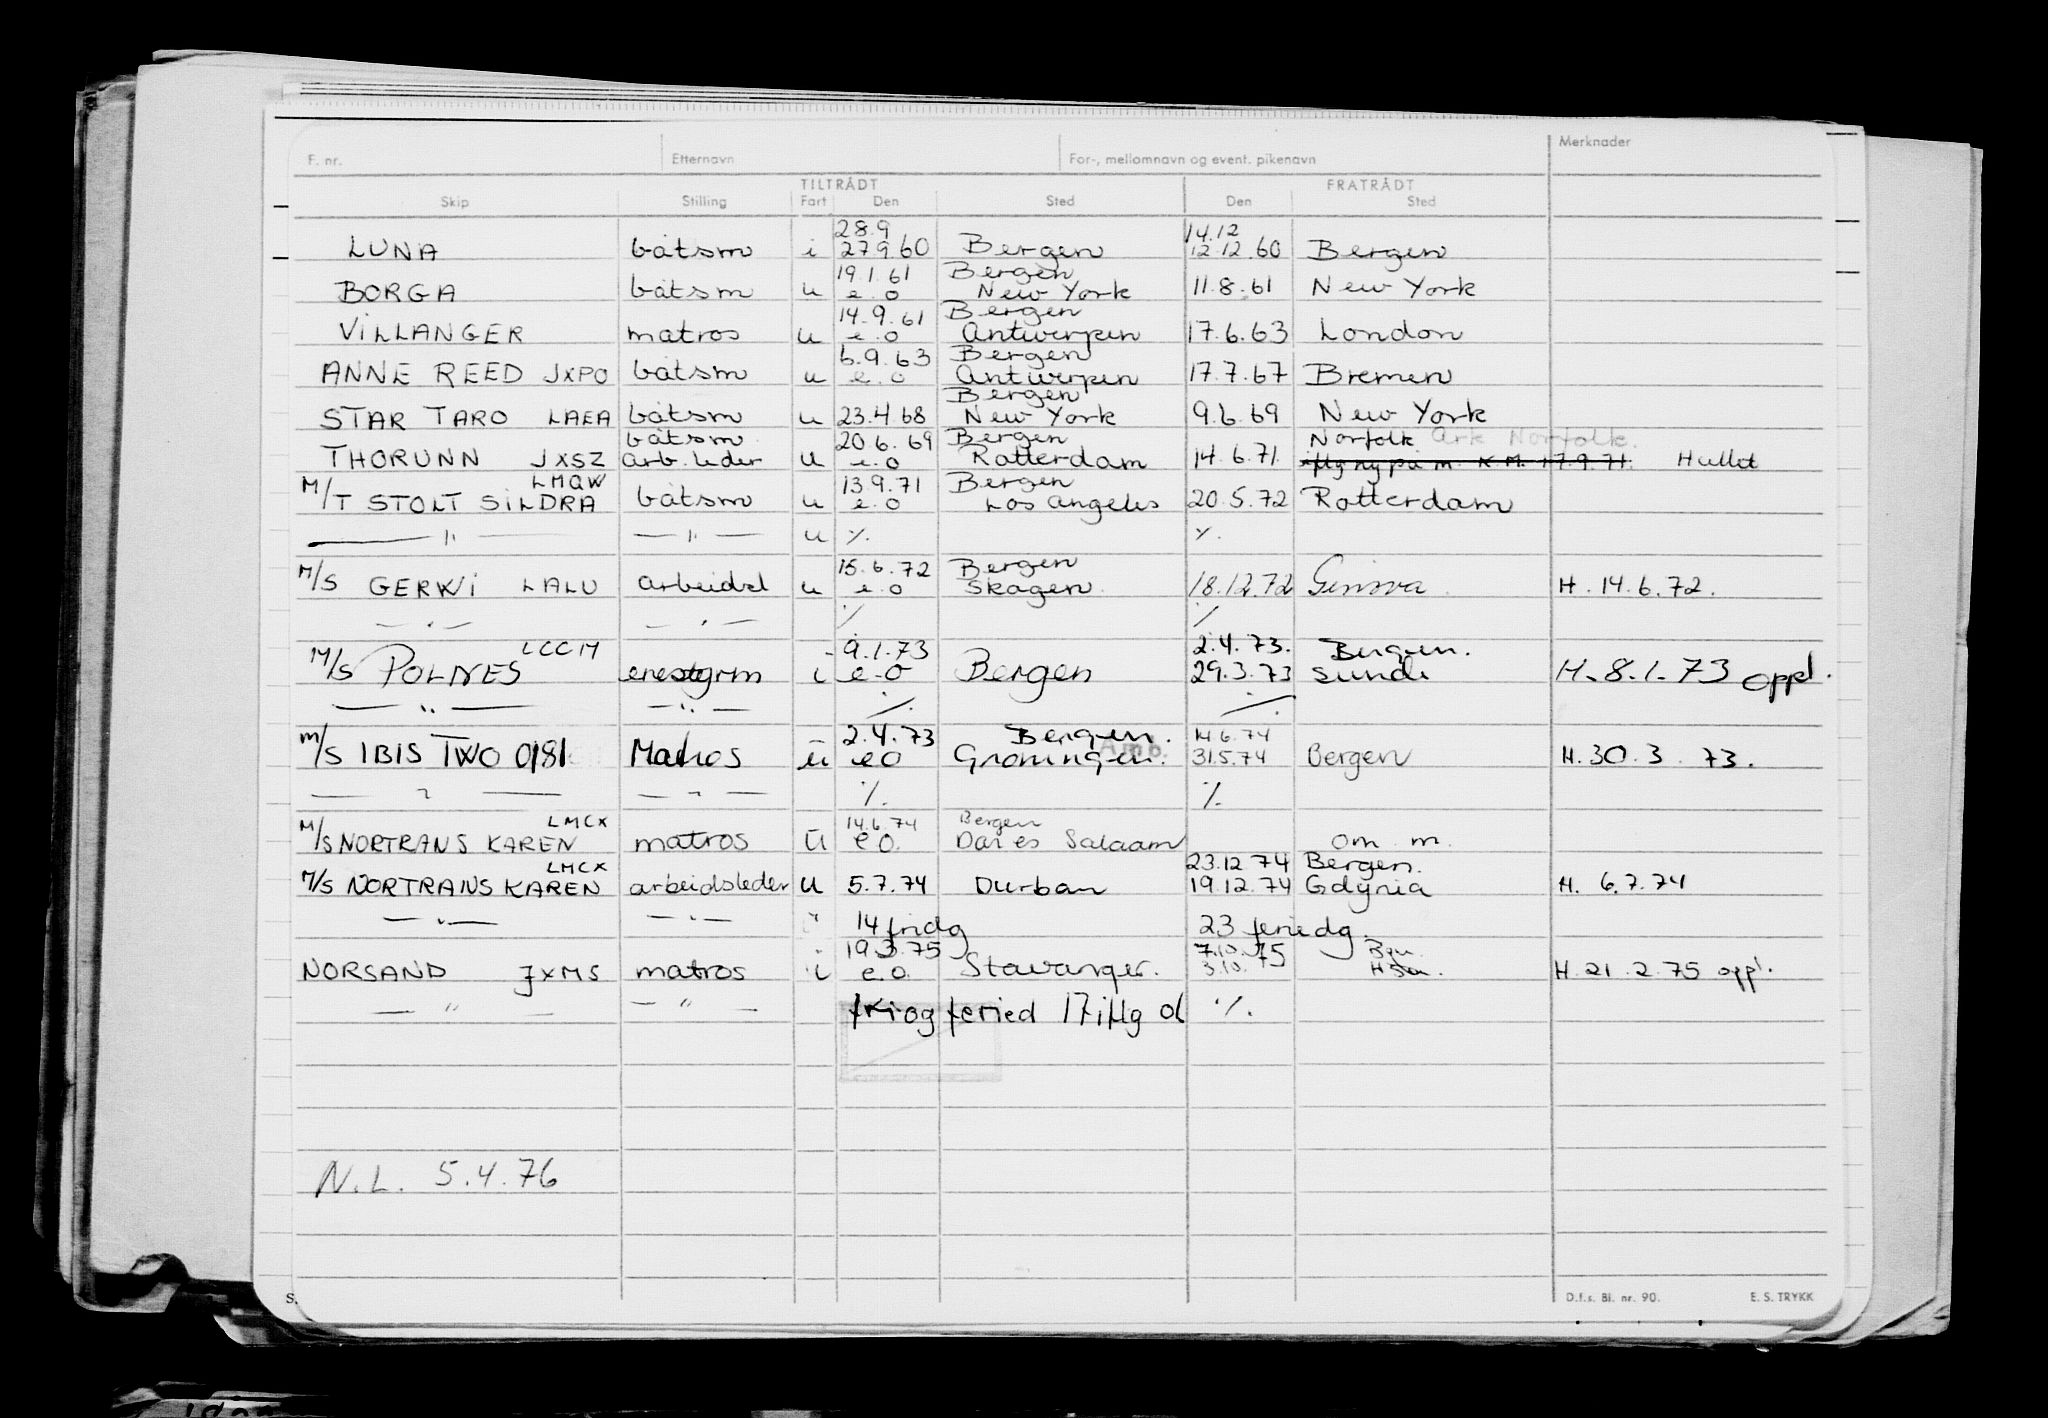 F. nr. Etternavn For-, mellomnavn og event. pikenavn Merknader
TILTRÅDT FRATRÅDT
Skip Stilling Fart Den Sted Den Sted
28.9 14.12
LUNA båtsm i 27.9.60 Bergen 12.12.60 Bergen
19.1.61 Bergen
BORGA båtsm u e.o New York 11.8.61 New York
14.9.61 Bergen
VILLANGER matros u e.o Antwerpen 17.6.63 London
6.9.63 Bergen
ANNE REED JXPO båtsm u e.o Antwerpen 17.7.67 Bremen
Bergen
STAR TARO LAEA båtsm u 23.4.68 New York 9.6.69 New York
båtsm 20.6.69 Bergen Norfolk Ark Norfolk.
THORUNN JXSZ arb.leder u e.o Rotterdam 14.6.71 iflg ny på m. K.M. 17.9.71. Hullet
LMQW 13.9.71 Bergen
M/T STOLT SILDRA båtsm u e.o Los Angeles 20.5.72 Rotterdam
— " — — " — u ·/. ·/.
15.6.72 Bergen
M/S GERWI LALU arbeidsl u e.o Skagen 18.12.72 Genova H. 14.6.72.
— " — — " — ·/. ·/.
LCCM 9.1.73 2.4.73. Bergen.
M/S POLNES i e.o Bergen 29.3.73 Sunde H. 8.1.73 oppl.
— " — — " — ·/. ·/.
2.4.73 Bergen. 14.6.74
M/S IBIS TWO 0181 Matros u eo Groningen. 31.5.74 Bergen H. 30.3.73.
— " — — " — ·/. ·/.
LMCX 14.6.74 Bergen
M/S NORTRANS KAREN matros u e.o. Dar es Salaam om m.
LMCX 23.12.74 Bergen.
M/S NORTRANS KAREN arbeidsleder u 5.7.74 Durban 19.12.74 Gdynia H. 6.7.74
— " — — " — " 14 fridg 23 feriedg.
19.3.75 7.10.75 Bgn
NORSAND JXMS matros i e.o. Stavanger. 3.10. H. 21.2.75 oppl.
— " — — " — fri og feried 17 iflg d ·/.
N.L. 5.4.76
D.f.s. Bl. nr. 90. E. S. TRYKK